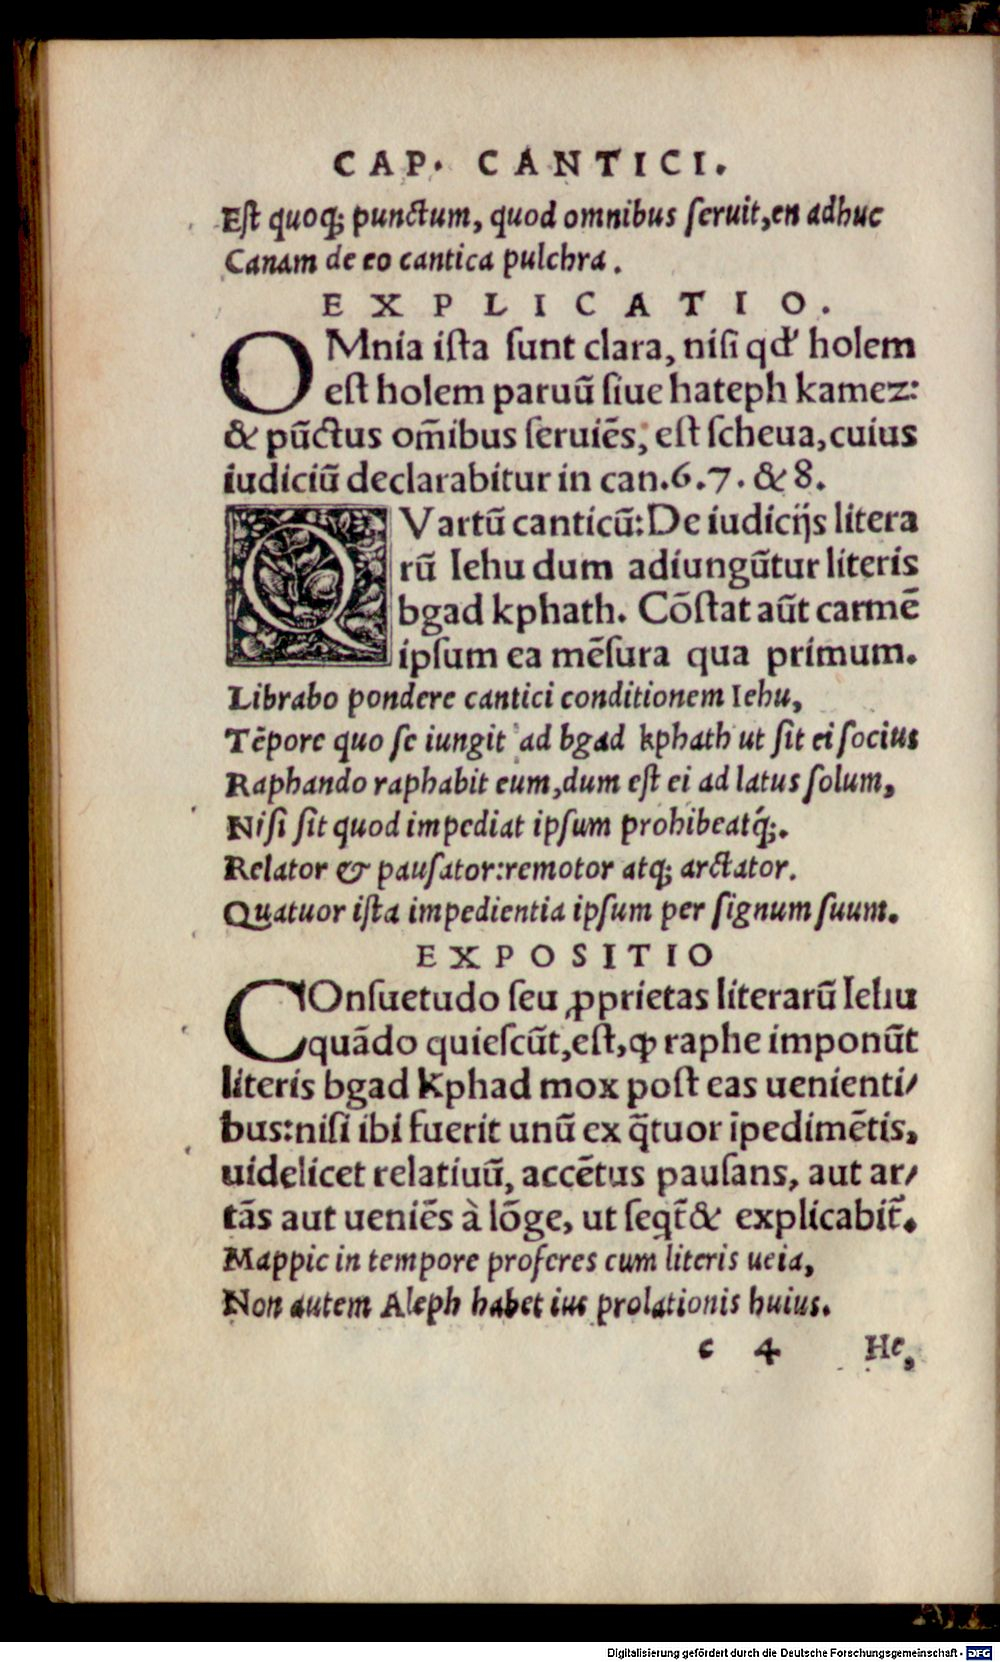 CAP. CANTICI.
Eſt quoq; punctum, quod omnibus ſeruit, en adhuc
Canam de eo cantica pulchra.
EXPLICATIO.
OMnia iſta ſunt clara, niſi qđ holem
eſt holem paruũ ſiue hateph kamez:
& pũctus om̃ibus ſeruiẽs, eſt ſcheua, cuius
iudiciũ declarabitur in can. 6. 7. & 8.
QVartũ canticũ: De iudicijs litera
rũ Iehu dum adiungũtur literis
bgad kphath. Cõſtat aũt carmẽ
ipſum ea mẽſura qua primum.
Librabo pondere cantici conditionem Iehu,
Tẽpore quo ſe iungit ad bgad kphath ut ſit ei ſocius
Raphando raphabit eum, dum eſt ei ad latus ſolum,
Niſi ſit quod impediat ipſum prohibeatq́;.
Relator & pauſator: remotor atq; arctator.
Quatuor iſta impedientia ipſum per ſignum ſuum.
EXPOSITIO
COnſuetudo ſeu ꝓprietas literarũ Iehu
quãdo quieſcũt, eſt, ꝙ raphe imponũt
literis bgad kphad mox poſt eas uenienti/
bus: niſi ibi fuerit unũ ex q̃tuor ĩpedimẽtis,
uidelicet relatiuũ, accẽtus pauſans, aut ar/
tãs aut ueniẽs à lõge, ut ſeqt̃ & explicabit̃.
Mappic in tempore proferes cum literis ueia,
Non autem Aleph habet ius prolationis huius.
c 4 He,
Digitalisierung gefördert durch die Deutsche Forschungsgemeinschaft - DFG